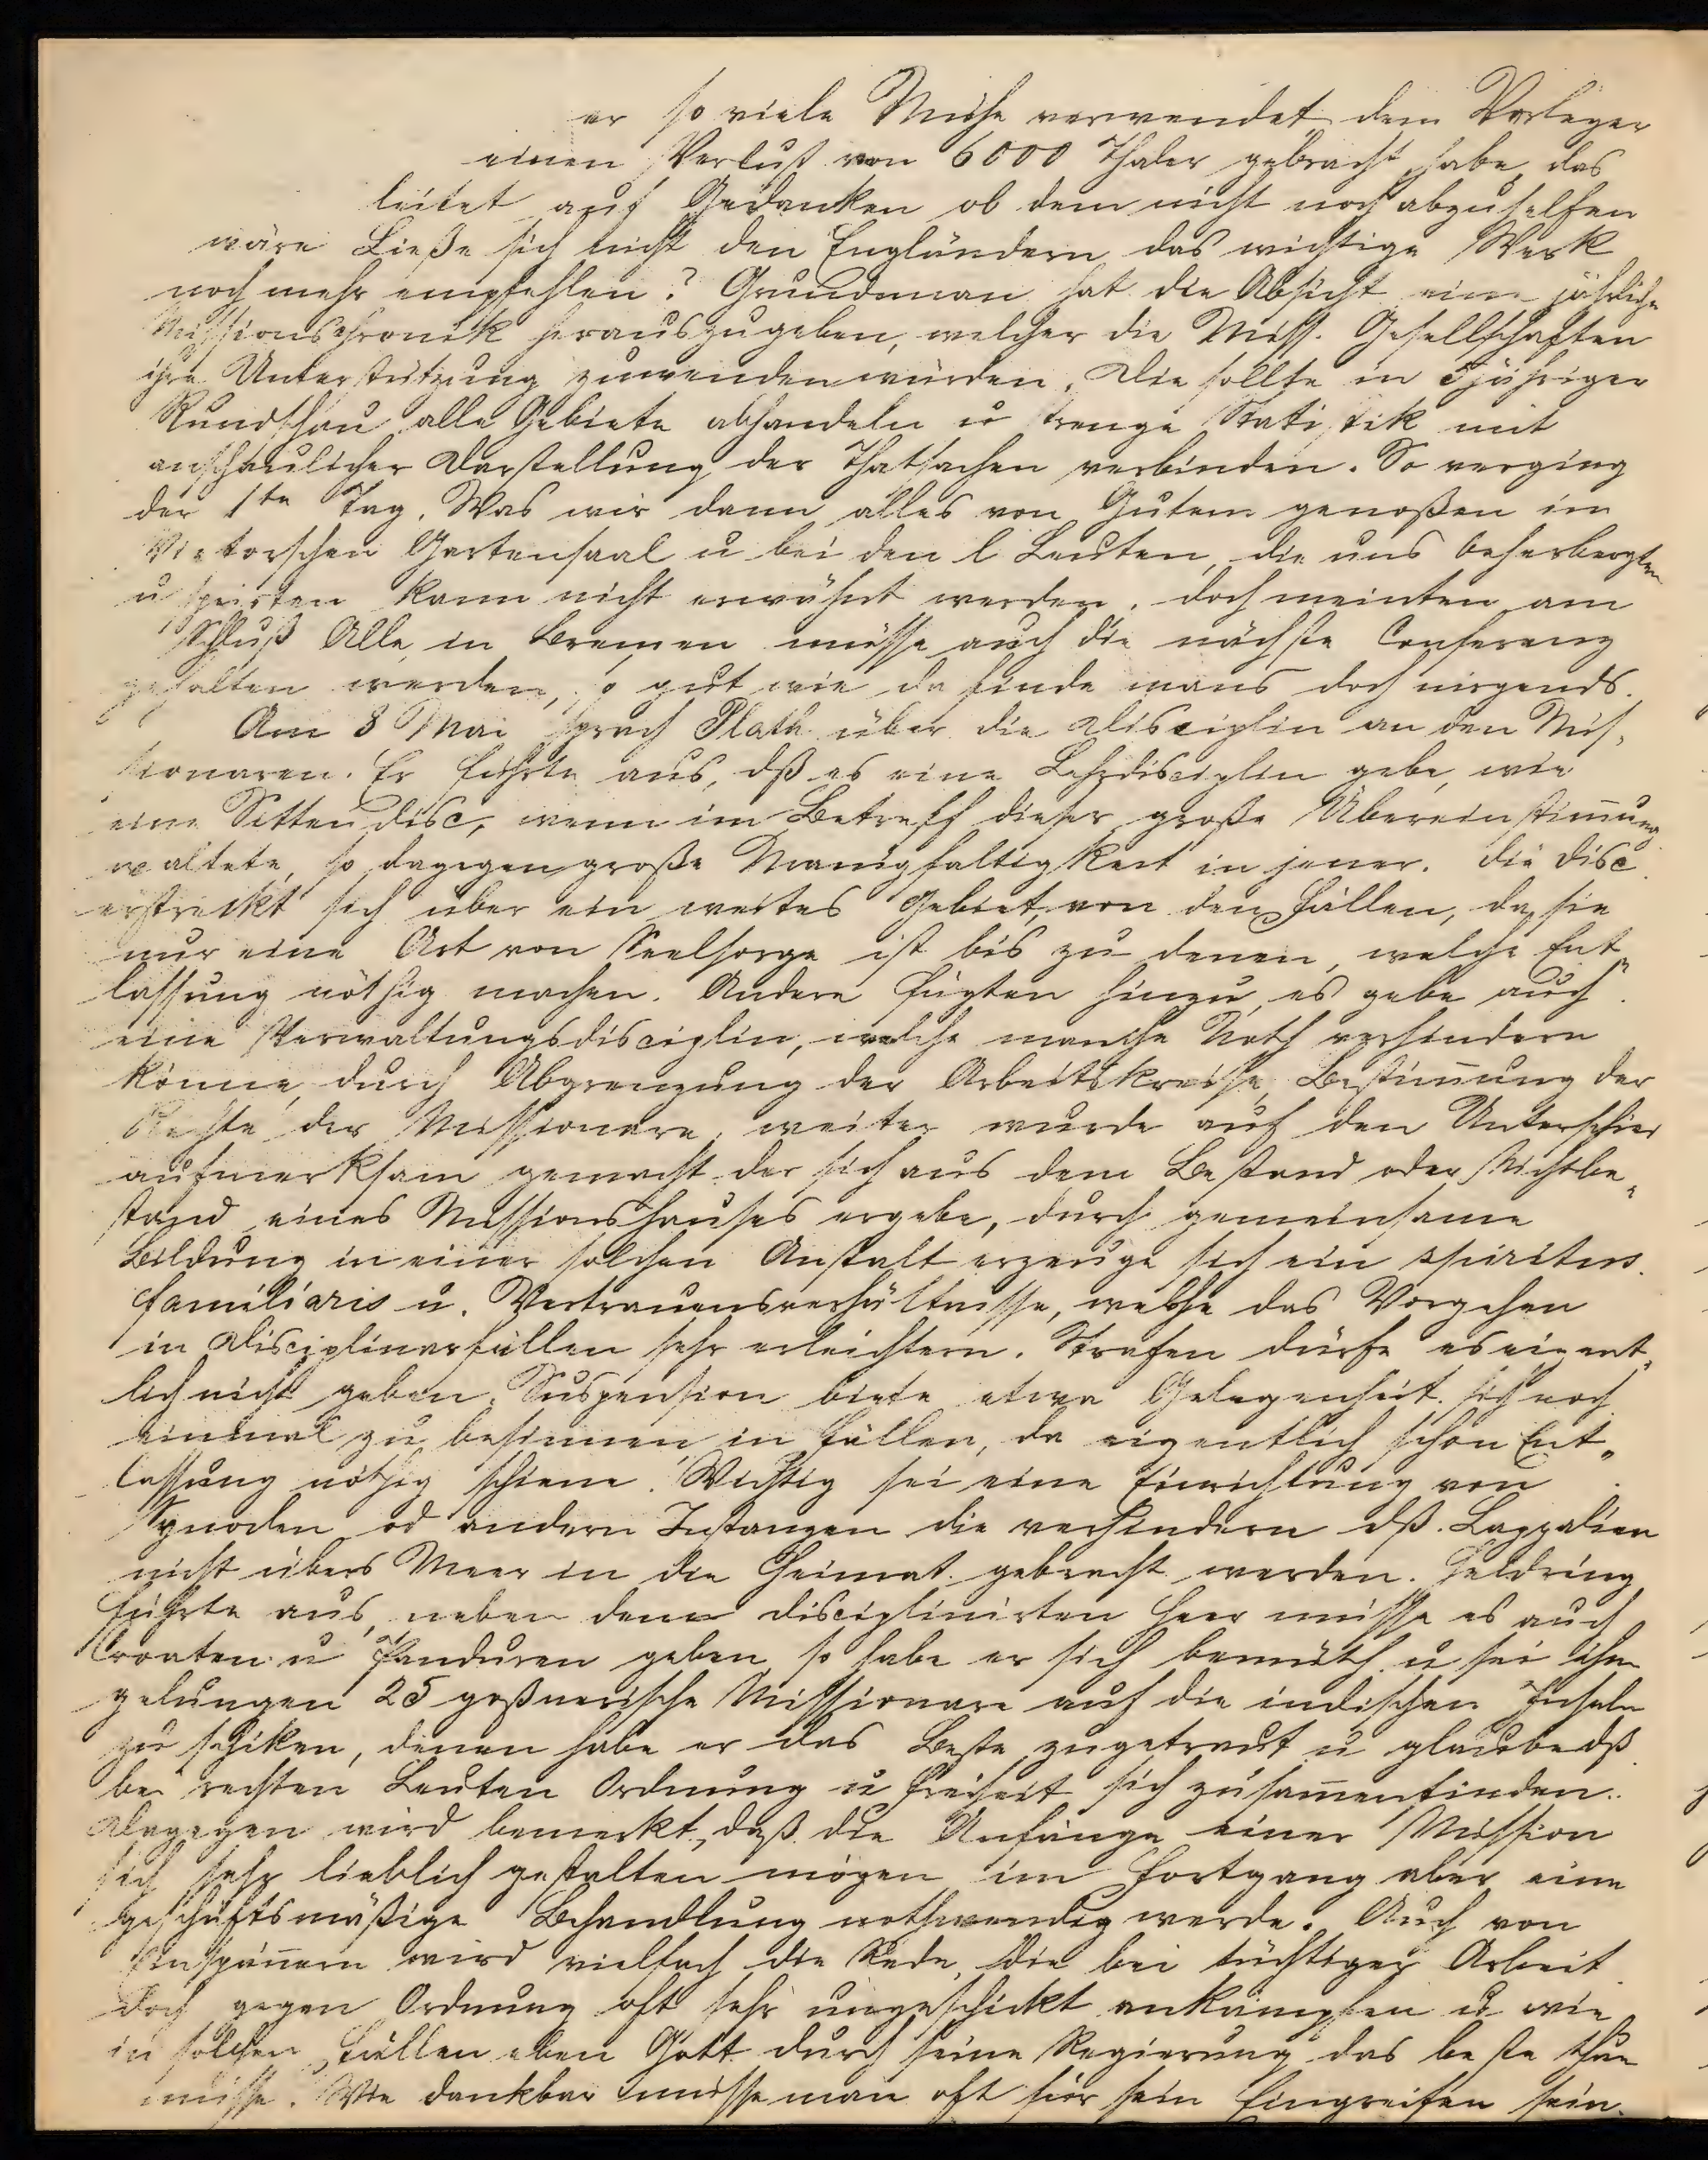 er so viele Mühe verwendet dem Verleger
einen Verlust von 6000 Thaler gebracht habe, das
leitet auf Gedanken ob dem nicht noch abzuhelfen
wäre Ließe sich nicht den Engländern das wichtige Werk
noch mehr empfehlen? Grundeman hat die Absicht eine jährliche
Missionschronik herauszugeben, welcher die Miss. Gesellschaften
ihre Unterstützung zuwenden würden. Die sollte in 3jähriger
Rundschau alle Gebiete abhandeln u strenge Statistik mit
anschaulicher Darstellung der Thatsachen verbinden. So verging
der 1te Tag. Was wir dann alles von Gutem genoßen im
Vietorschen Gartensaal u bei den l Leuten, die uns beherbergten
u speisten kann nicht erwähnt werden. doch meinten am
Schluß Alle, in Bremen müsse auch die nächste Conferenz
gehalten werden, so gut wie da finde mans doch nirgends.
Am 8 Mai sprach Plath über die Disciplin an den Mis-
sionaren. Er führte aus, dß es eine Lehrdisciplin gebe, wie
eine Sittendisc, wenn im Betreff dieser große Übereinstimmung
waltete, so dagegen große Manigfaltigkeit in jener. Die disc
erstreckt sich über ein weites Gebiet, von den Fällen, da sie
nur eine Art von Seelsorge ist bis zu denen, welche Ent-
lassung nöthig machen. Andere fügten hinzu, es gebe auch
eine Verwaltungsdisciplin, welche manche Noth verhindern
könne, durch Abgrenzung der Arbeitskreise, Bestimmung der
Rechte der Missionare, weiter wurde auf den Unterschied
aufmerksam gemacht der sich aus dem Bestand oder Nichtbe-
stand eines Missionshauses ergebe, durch gemeinsame
Bildung in einer solchen Anstalt erzeuge sich ein spiritus
familiaris u. Vertrauensverhältnisse, welche das Vorgehen
in Disciplinarfällen sehr erleichtern. Strafen dürfe es eigent-
lich nicht geben. Suspension biete etwa Gelegenheit sich noch
einmal zu besinnen, in Fällen, da eigentlich schon Ent-
lassung nöthig schiene. Wichtig sei eine Einrichtung von
Synoden od andern Instanzen die verhindern dß Lappalien
nicht übers Meer in die Heimat gebracht werden. Heldring
führte aus, neben dem disciplinirten Heer müsse es auch
Croaten u Panduren geben, so habe er sich bemüth u sei ihm
gelungen 25 goßnerische Missionare auf die indischen Inseln
zu schiken, denen habe er das Beste zugetraut u glaube dß
bei rechten Leuten Ordnung u Freiheit sich zusammenfinden.
Dagegen wird bemerkt, daß die Anfänge einer Mission
sich sehr lieblich gestalten mögen im Fortgang aber eine
geschäftsmäßige Behandlung nothwendig werde. Auch von
Einspännern wird vielfach die Rede, die bei tüchtiger Arbeit
doch gegen Ordnung oft sehr ungeschickt ankämpfen u wie
in solchen Fällen eben Gott durch seine Regierung das beste thun
müsse. Wie dankbar müsse man oft für sein Eingreifen sein.